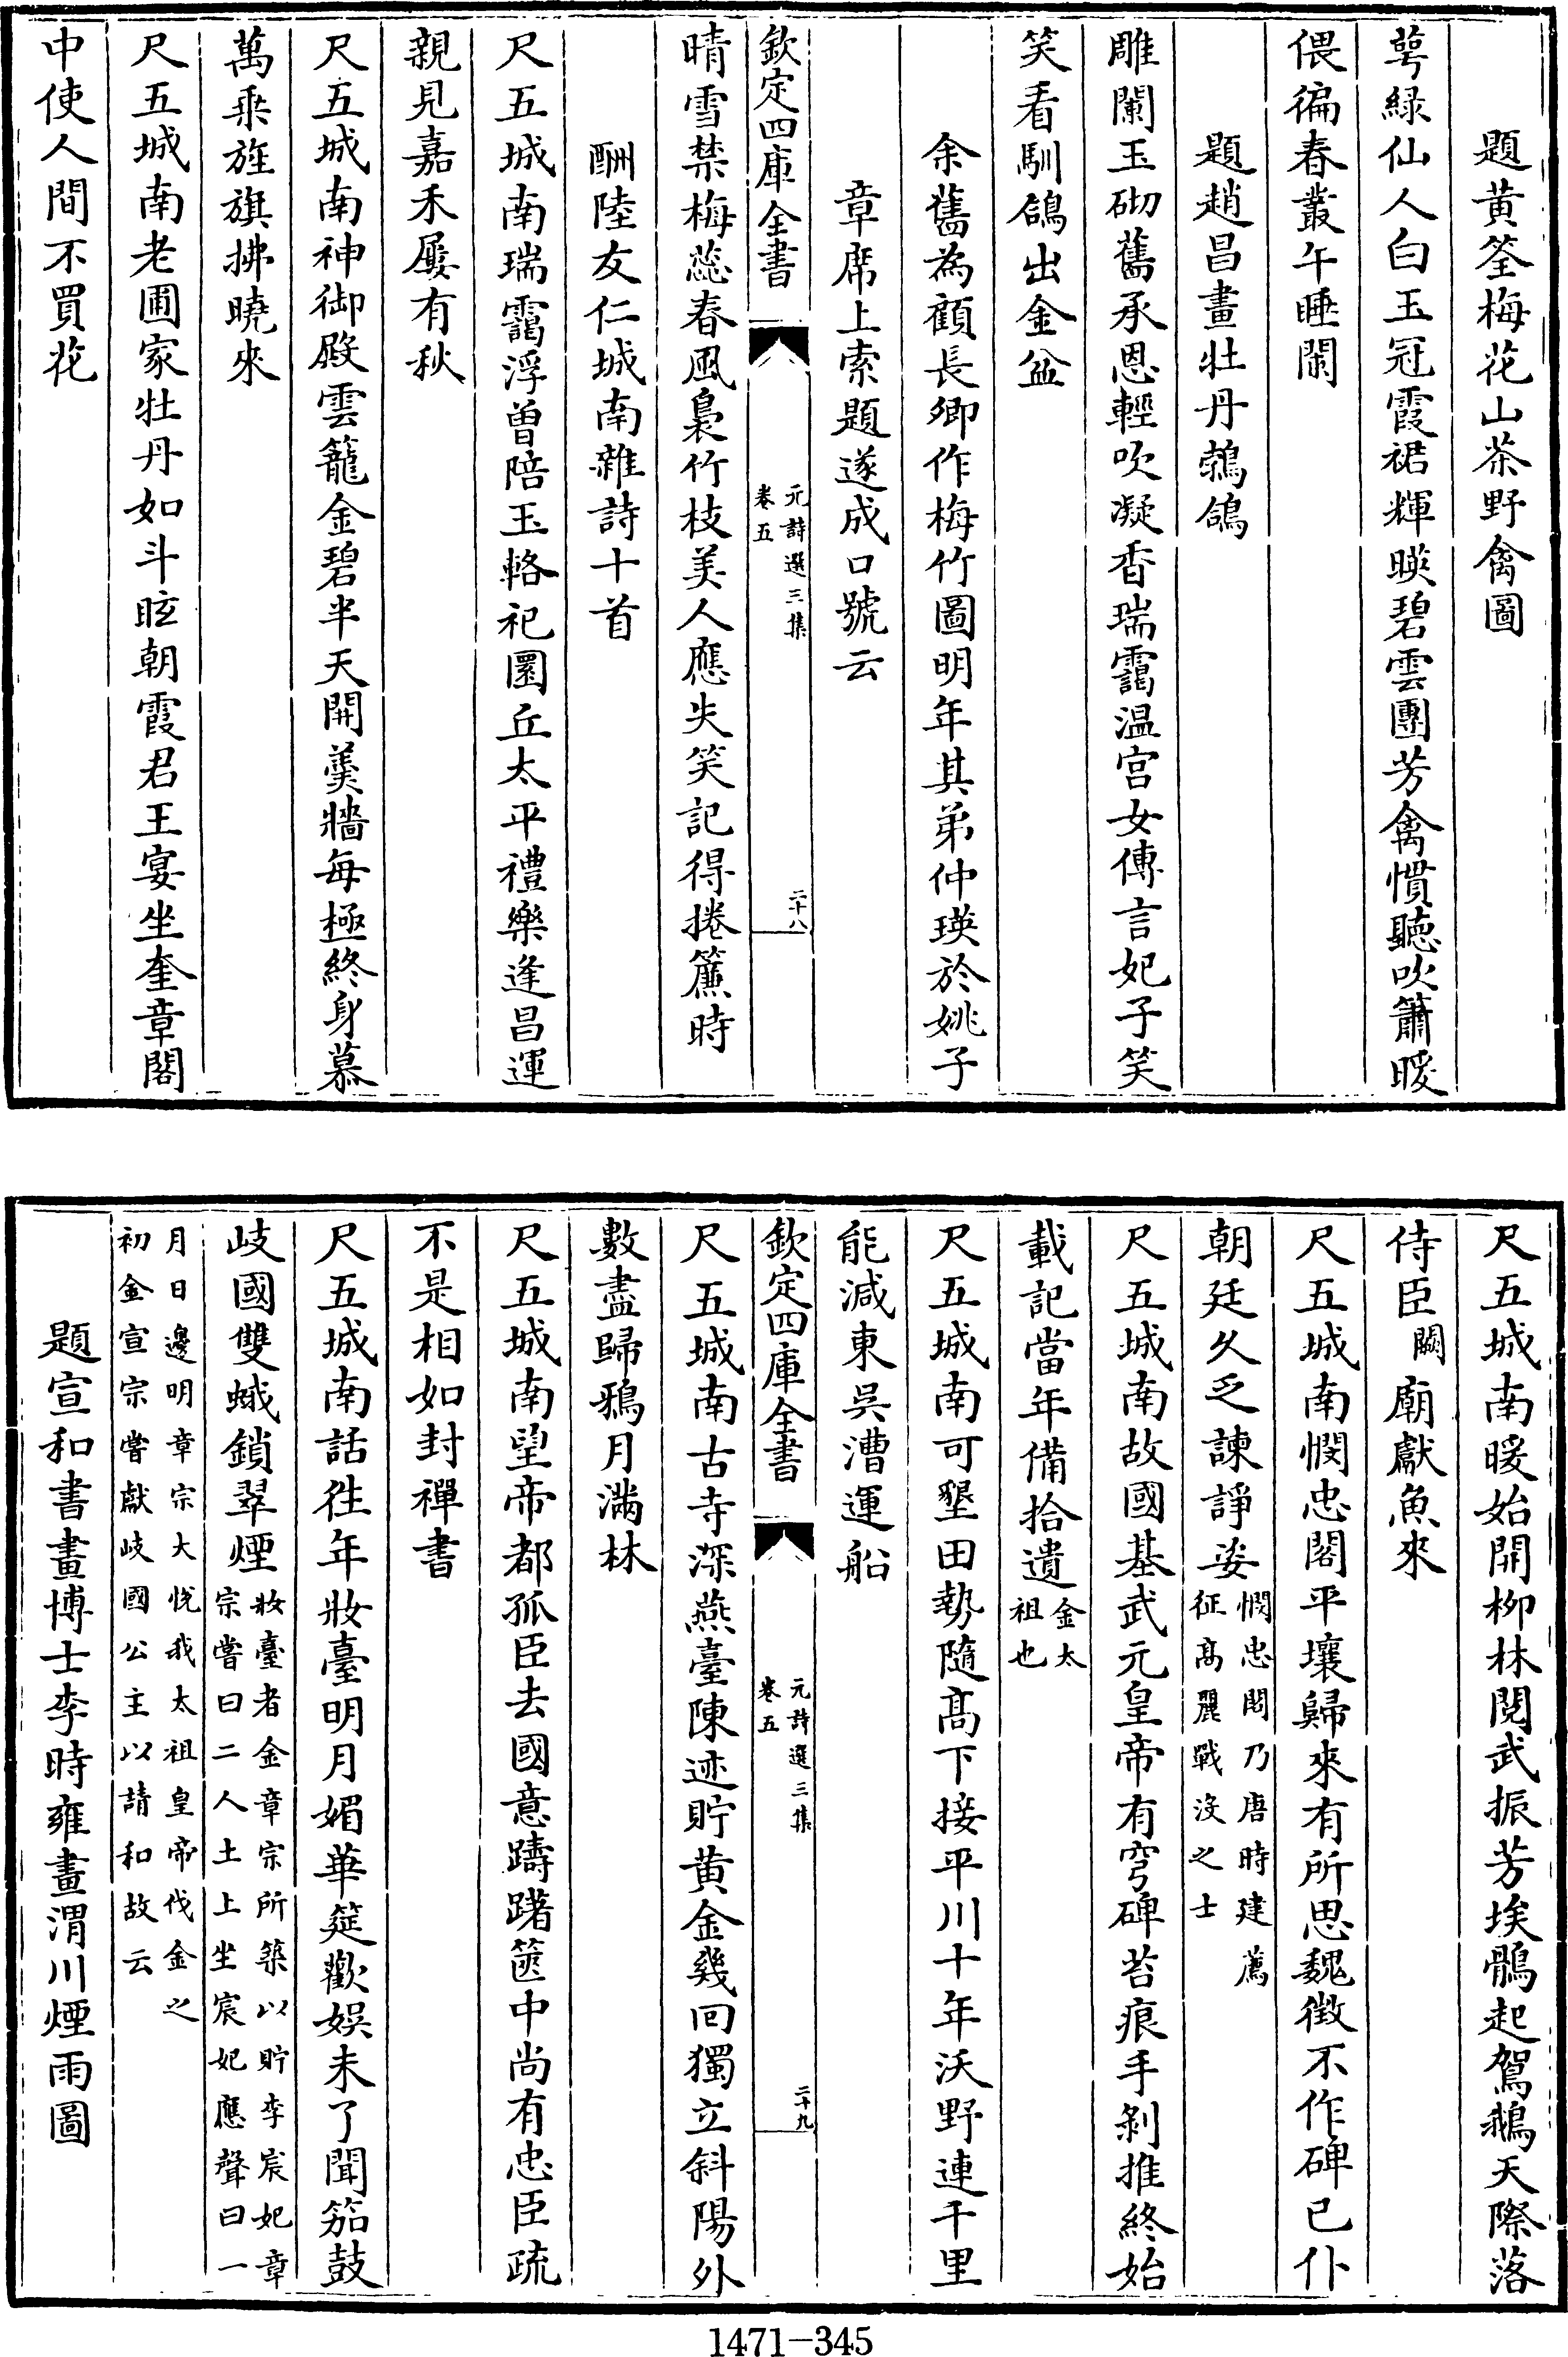 題黄筌梅花山茶野禽圖
萼緑仙人白玉冠霞裾輝暎碧雲團芳禽慣聽吹簫暖
偎徧春叢午睡閑
題趙昌畫牡丹鵓鴿
雕闌玉砌舊承恩輕吹凝香瑞靄温宫女傳言妃子笑
笑看馴鴿出金盆
余舊為顧長卿作梅竹圖明年其弟仲瑛於姚子
章席上索題遂成口號云
欽定四庫全書
元詩選三集
卷五
二十八
晴雪禁梅蕊春風裊竹枝美人應失笑記得捲簾時
酬陸友仁城南雜詩十首
尺五城南瑞靄浮曽陪玉輅祀圜丘太平禮樂逢昌運
親見嘉禾屢有秋
尺五城南神御殿雲籠金碧半天開羮牆每極終身慕
萬乗旌旗拂曉來
尺五城南老圃家牡丹如斗眩朝霞君王宴坐奎章閣
中使人間不買花
尺五城南暖始開柳林閲武振芳埃鶻起駕鵝天際落
侍臣闕廟獻魚來
尺五城南憫忠閣平壤歸來有所思魏徴不作碑已仆
朝廷久乏諫諍姿憫忠閣乃唐時建薦
征髙麗戰没之士
尺五城南故國基武元皇帝有穹碑苔痕手剝推終始
載記當年備拾遺金太
祖也
尺五城南可墾田勢隨髙下接平川十年沃野連千里
能減東吳漕運船
欽定四庫全書
元詩選三集
卷五
二十九
尺五城南古寺深燕臺陳迹貯黄金幾回獨立斜陽外
數盡歸鴉月滿林
尺五城南望帝都孤臣去國意躊躇篋中尚有忠臣疏
不是相如封禪書
尺五城南話徃年妝臺明月媚華筵歡娛未了聞笳鼓
岐國雙蛾鎖翠煙妝臺者金章宗所築以貯李宸妃章
宗嘗曰二人土上坐宸妃應聲曰一
月日邊明章宗大悅我太祖皇帝伐金之
初金宣宗嘗獻岐國公主以請和故云
題宣和書畫博士李時雍畫渭川煙雨圖
1471-345